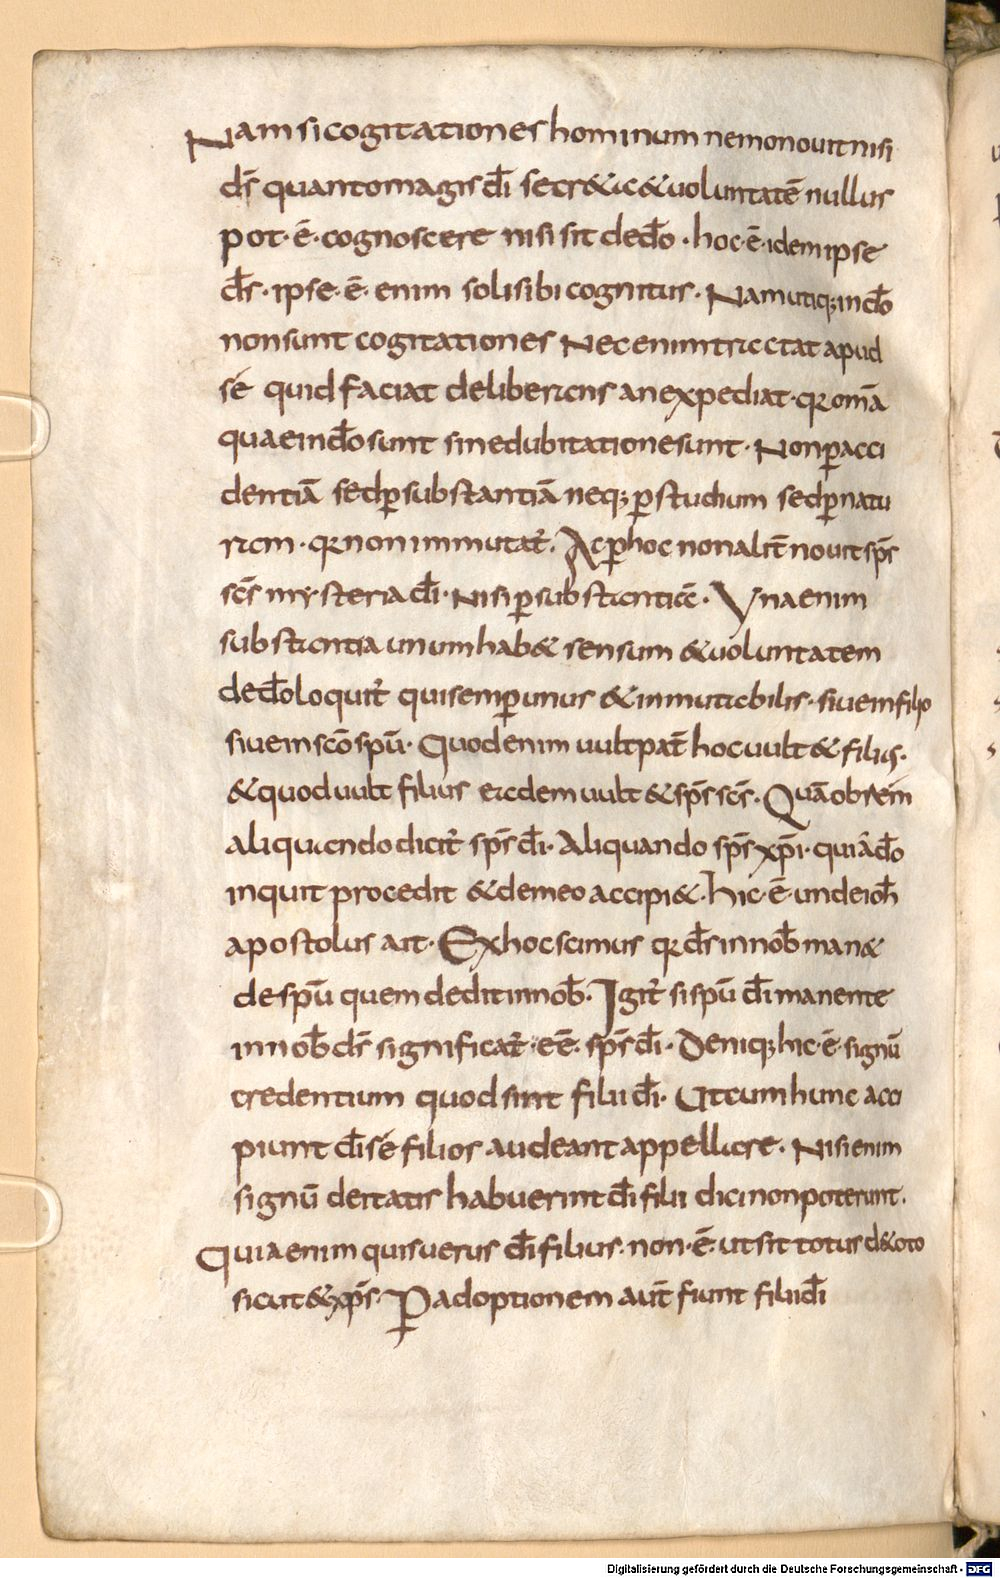 Nam si cogitationes hominum nemo nouit nisi
d̄s quanto magis d̄i secr&a & uoluntatē nullus
pot · ē · cognoscere nisi sit de d̄o · hoc · ē · idem ipse
d̄s · ipse · ē · enim soli sibi cognitus · Nam utiq; in d̄o
non sunt cogitationes Nec enim tractat apud
sé quid faciat deliberans an expediat · qr omā
quae in d̄o sunt sine dubitatione sunt · Non ꝑ acci
dentiā sed ꝑ substantiā neq; ꝑ studium sed ꝑ natu
ram · qr non immutat̄ · Ac ꝑ hoc non alit̄ nouit sp̄s
sc̄s mysteria d̄i · Nisi ꝑ substantiā · Una enim
substantia unum hab& sensum & uoluntatem
de d̄o loquit̄ qui semꝑ unus & inmutabilis · siue in filio
siue in sc̄o spū · Quod enim uult pat̄ hoc uult & filius ·
& quod uult filius eadem uult & sp̄s sc̄s · Quā ob rem
aliquando dicit̄ sp̄s d̄i · Aliquando sp̄s xp̄i · quia á d̄o
inquit procedit & de meo accipi& · hic · ē · unde ioh̄
apostolus ait · Ex hoc scimus qr d̄s in nob̄ man&
de spū quem dedit in nob̄ · Igit̄ si spū d̄i manente
in nob̄ d̄s significat̄ · eē · sp̄s d̄i · Deniq; hic · ē · signū
credentium quod sint filii d̄i · Ut cum hunc acci
piunt d̄i sé filios audeant appellare · Nisi enim
signū deitatis habuerint d̄i filii dici non poterunt ·
Quia enim quis uerus d̄i filius · non · ē · ut sit totus d& oto
sicut & xp̄s · P adoptionem aūt fiunt filii d̄i
Digitalisierung gefördert durch die Deutsche Forschungsgemeinschaft - DFG